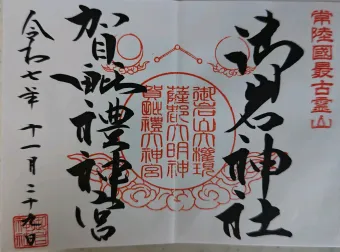 常陸國最古霊山
御岩神社
御岩山大権現
薩都大明神
賀毗禮大神宮
賀毗禮神宮
令和七年 十一月二十九日